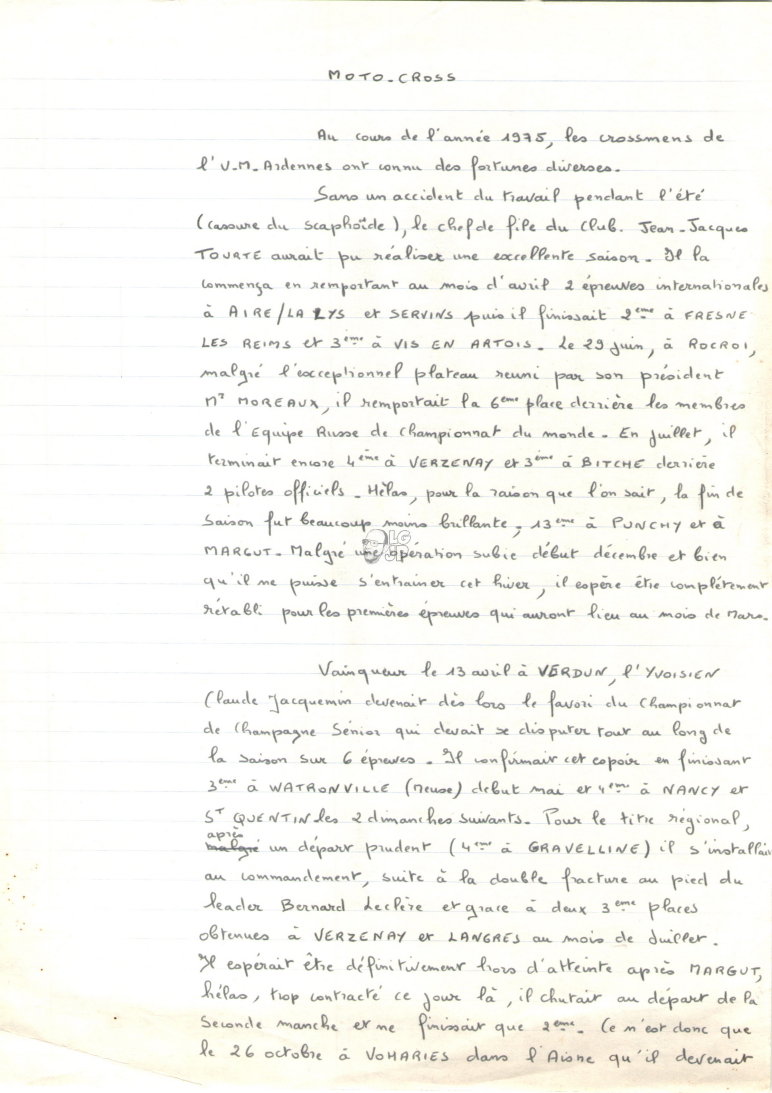 MOTO-CROSS
Au cours de l'année 1975, les crossmens de
l'U.M. Ardennes ont connu des fortunes diverses.
Sans un accident du travail pendant l'été
(cassure du scaphoïde), le chef de file du club. Jean-Jacques
TOURTE aurait pu réaliser une excellente saison. Il la
commença en remportant au mois d'avril 2 épreuves internationales
à AIRE/LA LYS et SERVINS puis il finissait 2ème à FRESNE
LES REIMS et 3ème à VIS EN ARTOIS. Le 29 juin, à ROCROI,
malgré l'exceptionnel plateau reuni par son président
Mr MOREAUX, il remportait la 6ème place derrière les membres
de l'Equipe Russe de Championnat du monde. En juillet, il
terminait encore 4ème à VERZENAY et 3ème à BITCHE derrière
2 pilotes officiels. Hélas, pour la raison que l'on sait, la fin de
saison fut beaucoup moins brillante; 13ème à PUNCHY et à
MARGUT. Malgré une opération subie début décembre et bien
qu'il ne puisse s'entrainer cet hiver, il espère être complétement
rétabli pour les premières épreuves qui auront lieu au mois de Mars.
Vainqueur le 13 avril à VERDUN, l'YVOISIEN
Claude Jacquemin devenait dès lors le favori du Championnat
de Champagne Sénior qui devait se disputer tout au long de
la saison sur 6 épreuves. Il confirmait cet espoir en finissant
3ème à WATRONVILLE (Meuse) debut mai et 4ème à NANCY et
ST QUENTIN les 2 dimanches suivants. Pour le titre régional,
après
malgré un départ prudent (4ème à GRAVELLINE) il s'installait
au commandement, suite à la double fracture au pied du
leader Bernard Leclère et grace à deux 3ème places
obtenues à VERZENAY et LANGRES au mois de Juillet.
Il espérait être définitivement hors d'atteinte après MARGUT,
hélas, trop contracté ce jour là, il chutait au départ de la
seconde manche et ne finissait que 2ème. Ce n'est donc que
le 26 octobre à VOHARIES dans l'Aisne qu'il devenait
LG
JP